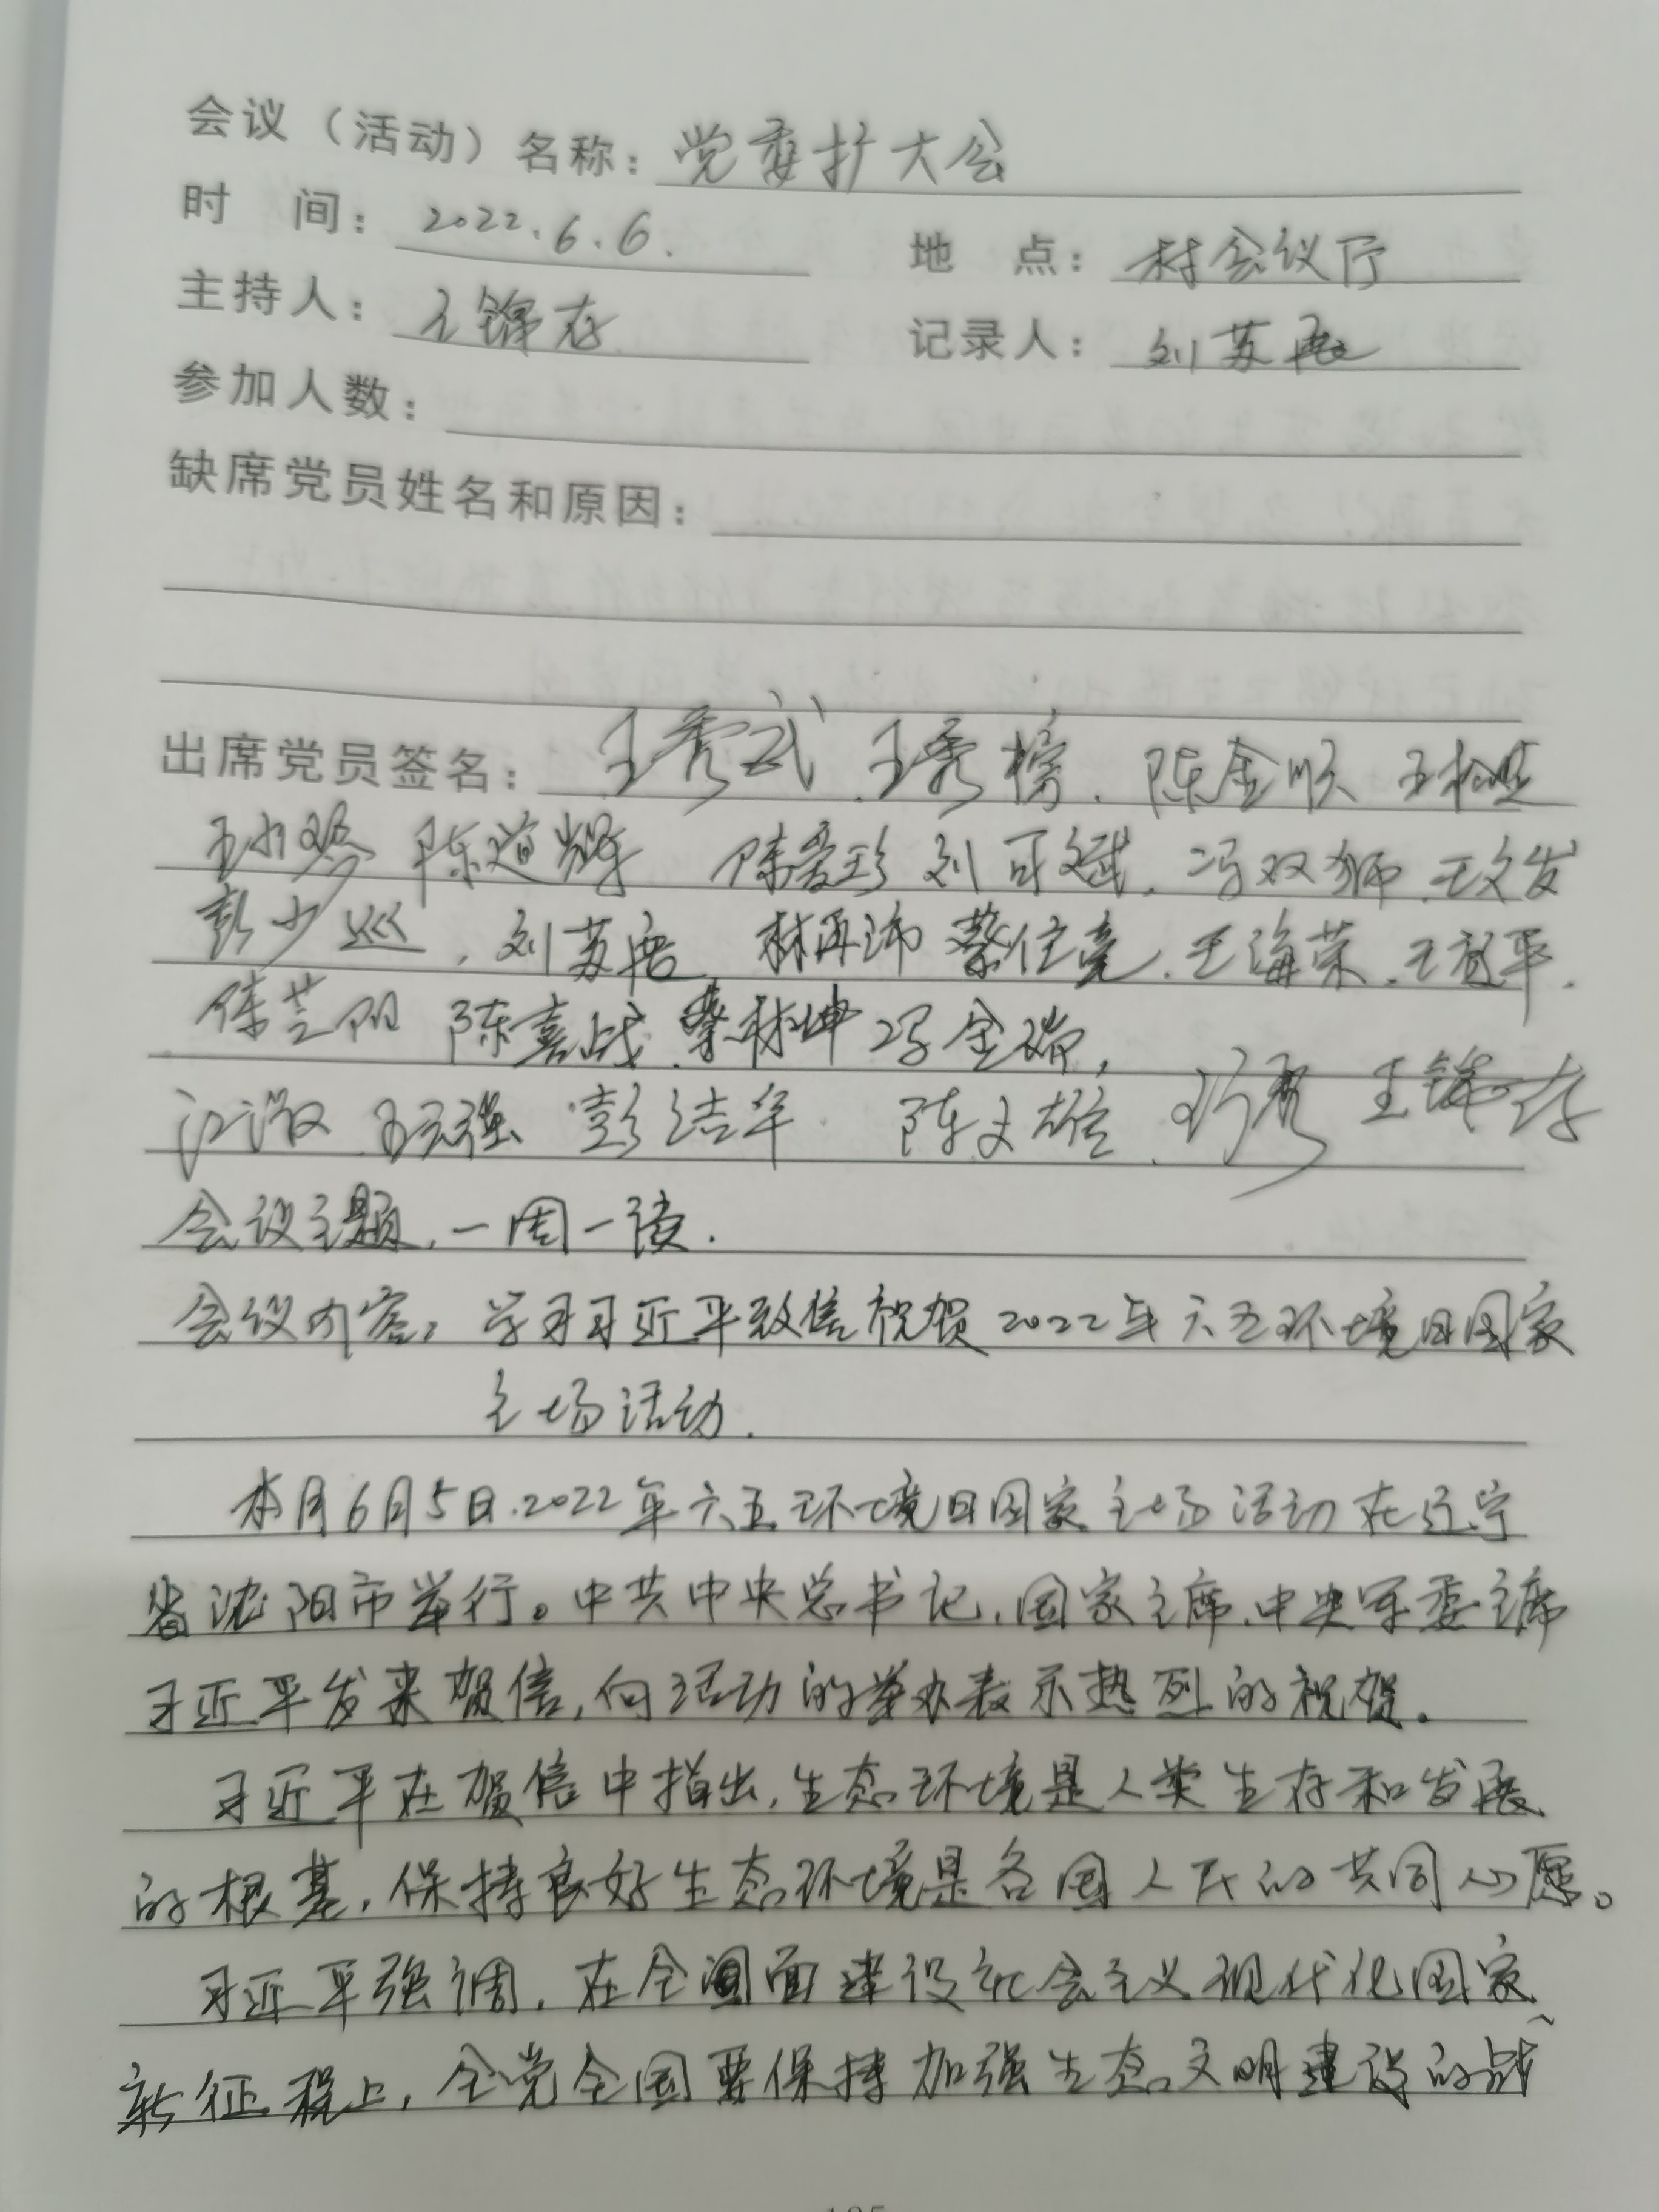 会议（活动）名称：党委扩大会
时 间：2022.6.6.
地 点：村会议厅
主持人：王锋存
记录人：刘苏
参加人数：
缺席党员姓名和原因：
出席党员签名：王秀武 王秀榜、陈金顺
陈道辉 陈爱珍 刘可斌、冯双狮、王文发
彭少巡，刘苏 林再沛 蔡住亮、王海荣、
陈芝阳 陈嘉战、蔡林坤 冯金瑞，
强 彭洁华 陈文雄、 王锋存
会议主题，一周一读．
会议内容：学习习近平致信祝贺2022年六五环境日国家
主场活动．
本月6月5日.2022年六五环境日国家主场活动在辽宁
省沈阳市举行。中共中央总书记，国家主席、中央军委主席
习近平发来贺信，向活动的举办表示热烈的祝贺。
习近平在贺信中指出，生态环境是人类生存和发展
的根基，保持良好生态环境是各国人民的共同心愿。
习近平强调，在全面建设社会主义现代化国家
新征程上，全党全国要保持加强生态文明建设的战